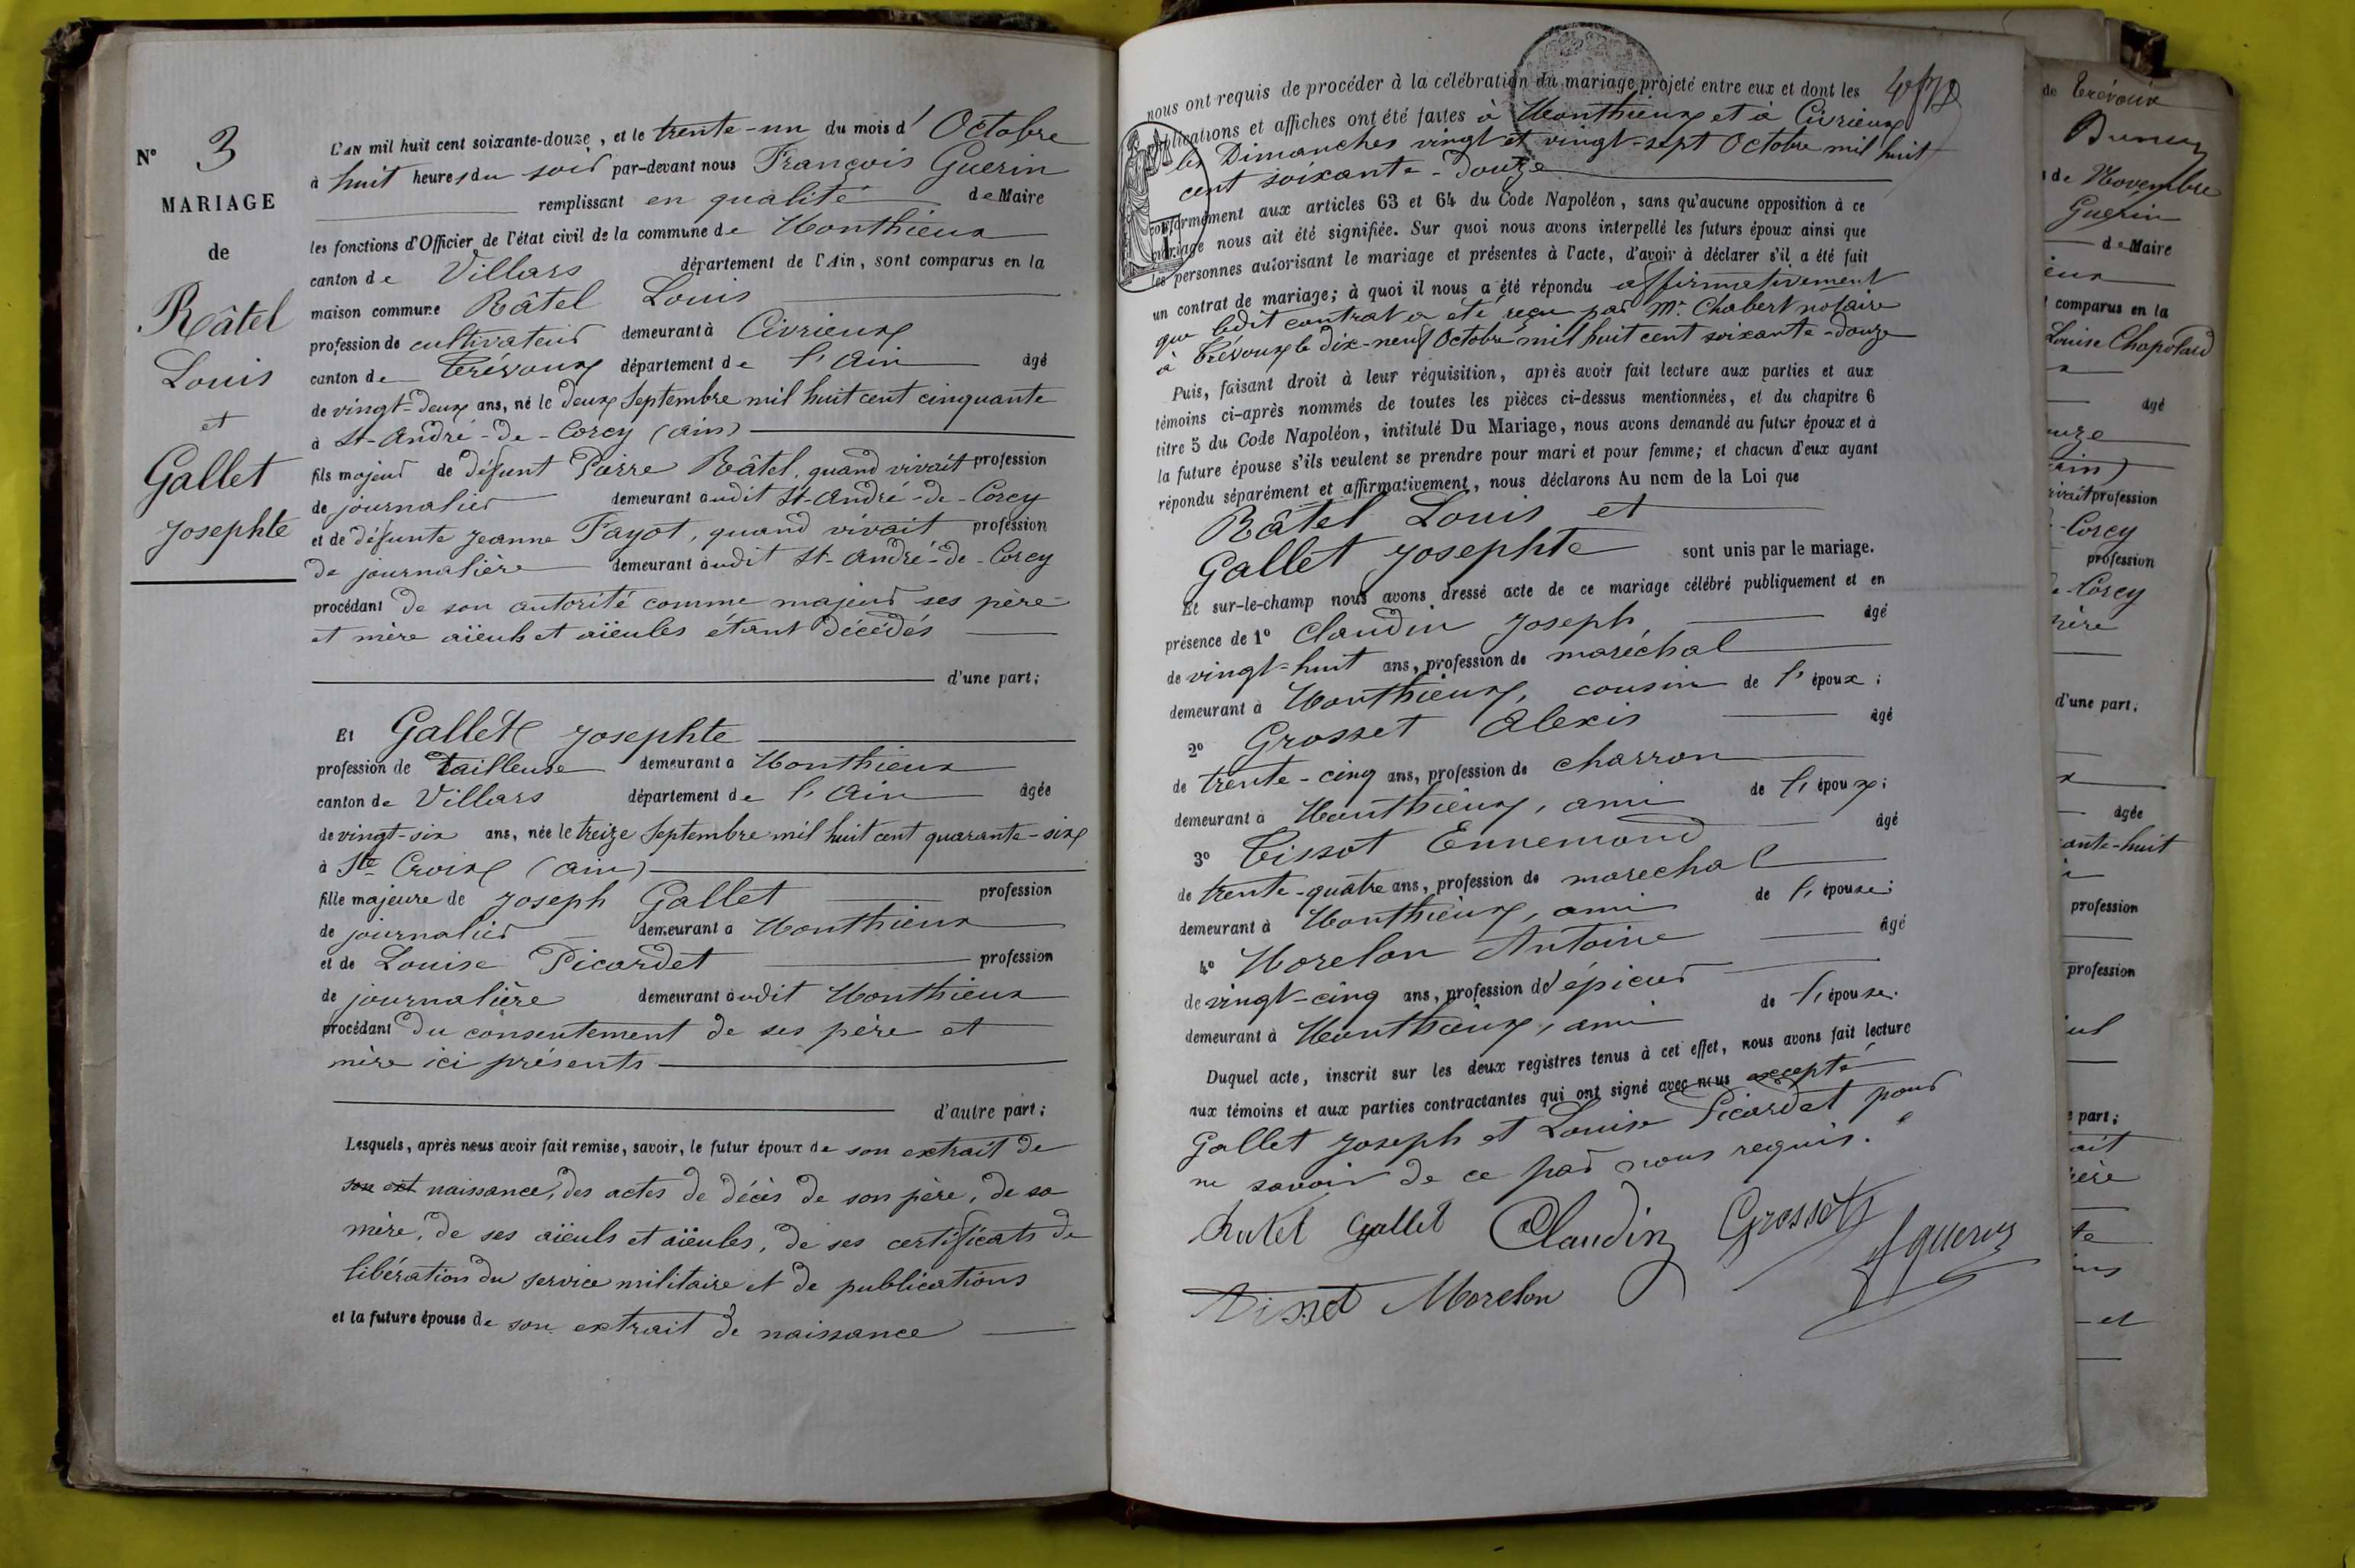 N° 3
MARIAGE
de
Râtel
Louis
et
Gallet
Josephte
L'AN mil huit cent soixante-douze, et le trente-un du mois d' Octobre
à huit heures du soir par-devant nous François Guerin
remplissant en qualité de Maire
les fonctions d'Officier de l'état civil de la commune de Monthieux
canton de Villars département de l'Ain, sont comparus en la
maison commune Râtel Louis
profession de cultivateur demeurant à Civrieux
canton de Trévoux département de l'Ain âgé
de vingt-deux ans, né le deux Septembre mil huit cent cinquante
à St-André-de-Corcy (Ain)
fils majeur de défunt Pierre Râtel, quand vivait profession
de journalier demeurant audit St-André-de-Corcy
et de défunte Jeanne Fayot, quand vivait profession
de journalière demeurant audit St-André-de-Corcy
procédant de son autorité comme majeur ses père
et mère aïeuls et aïeules étant décédés
d'une part;
Et Gallet Josephte
profession de tailleuse demeurant à Monthieux
canton de Villars département de l'Ain âgée
de vingt-six ans, née le treize Septembre mil huit cent quarante-six
à Ste Croix (Ain)
fille majeure de Joseph Gallet profession
de journalier demeurant à Monthieux
et de Louise Picardet profession
de journalière demeurant audit Monthieux
procédant du consentement de ses père et
mère ici présents
d'autre part;
Lesquels, après nous avoir fait remise, savoir, le futur époux de son extrait de
son ext naissance, des actes de décès de son père, de sa
mère, de ses aïeuls et aïeules, de ses certificats de
libération du service militaire et de publications
et la future épouse de son extrait de naissance
nous ont requis de procéder à la célébration du mariage projeté entre eux et dont les
publications et affiches ont été faites à Monthieux et à Civrieux
les Dimanches vingt et vingt-sept Octobre mil huit
cent soixante-douze
conformément aux articles 63 et 64 du Code Napoléon, sans qu'aucune opposition à ce
mariage nous ait été signifiée. Sur quoi nous avons interpellé les futurs époux ainsi que
les personnes autorisant le mariage et présentes à l'acte, d'avoir à déclarer s'il a été fait
un contrat de mariage; à quoi il nous a été répondu affirmativement
que ledit contrat a été reçu par Mr. Chabert notaire
à Trévoux le dix-neuf Octobre mil huit cent soixante-douze
Puis, faisant droit à leur réquisition, après avoir fait lecture aux parties et aux
témoins ci-après nommés de toutes les pièces ci-dessus mentionnées, et du chapitre 6
titre 5 du Code Napoléon, intitulé Du Mariage, nous avons demandé au futur époux et à
la future épouse s'ils veulent se prendre pour mari et pour femme; et chacun d'eux ayant
répondu séparément et affirmativement, nous déclarons Au nom de la Loi que
Râtel Louis et
Gallet Josephte sont unis par le mariage.
Et sur-le-champ nous avons dressé acte de ce mariage célébré publiquement et en
présence de 1° Claudin Joseph âgé
de vingt-huit ans, profession de maréchal
demeurant à Monthieux, cousin de l'époux;
2° Grosset Alexis âgé
de trente-cinq ans, profession de charron
demeurant à Monthieux, ami de l'époux;
3° Tissot Ennemond âgé
de trente-quatre ans, profession de marechal
demeurant à Monthieux, ami de l'épouse;
4° Morelon Antoine âgé
de vingt-cinq ans, profession d'épicier
demeurant à Monthieux, ami de l'épouse.
Duquel acte, inscrit sur les deux registres tenus à cet effet, nous avons fait lecture
aux témoins et aux parties contractantes qui ont signé avec nous excepté
Gallet Joseph et Louise Picardet pour
ne savoir de ce par nous requis.
Ratel Gallet Claudin Grosset
fguerin
Tissot Morelon
de Trévoux
de Novembre
Guerin
de Maire
comparus en la
Louise Chapolard
âgé
profession
-Corcy
profession
Corcy
d'une part;
âgée
-huit
profession
profession
part;
et